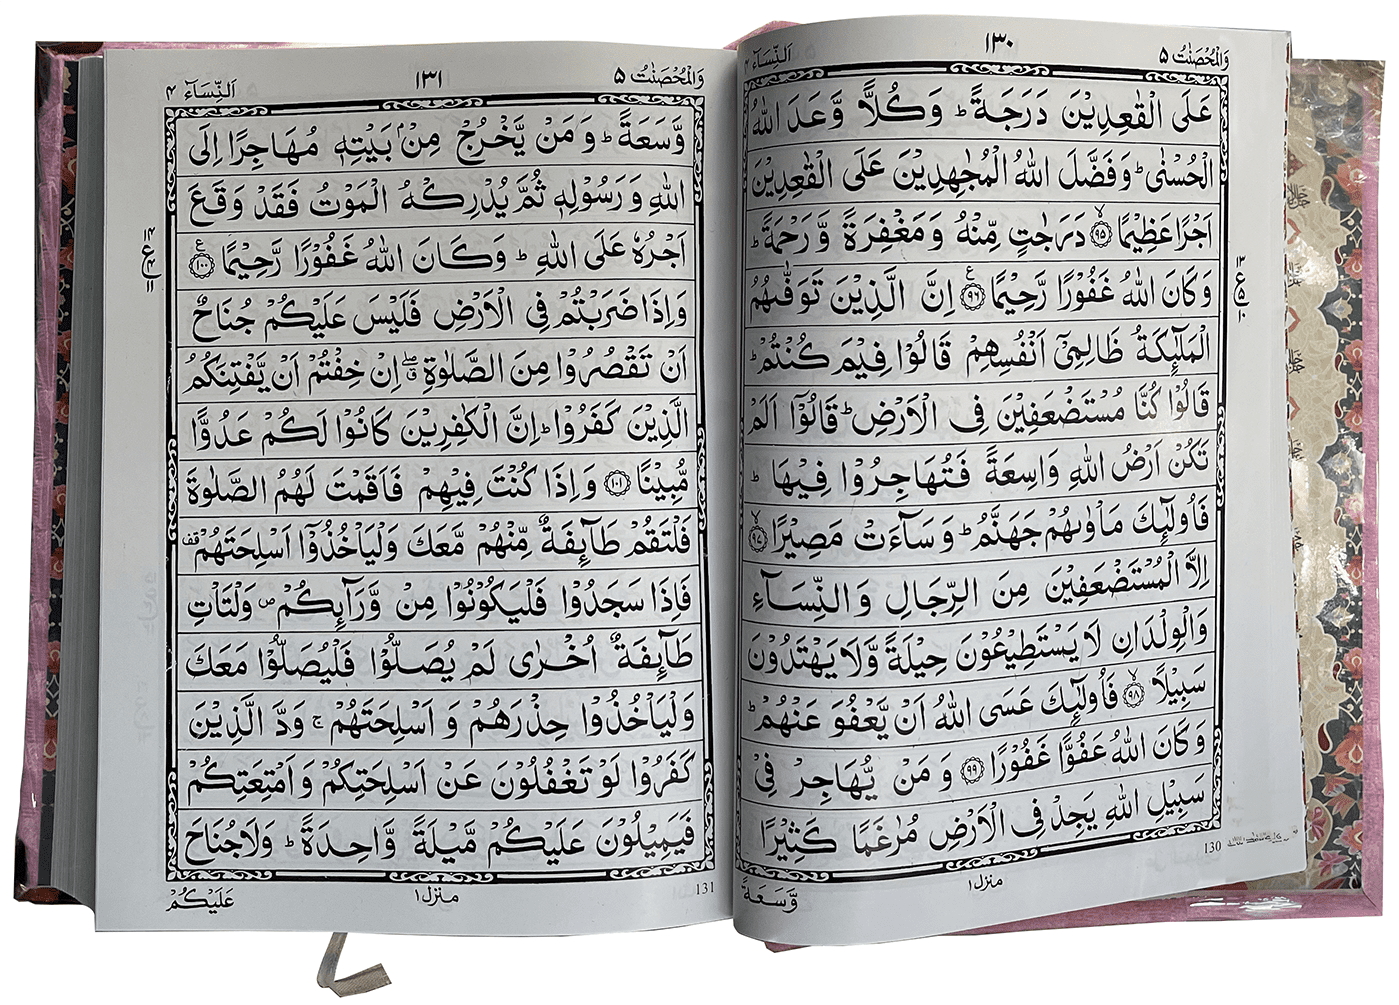 اَلنِّسَآء ۴
۱۳۰
وَالْمُحْصَنٰتُ ۵
عَلَى الْقٰعِدِيْنَ دَرَجَةً ؕ وَكُلًّا وَّعَدَ اللّٰهُ
الْحُسْنٰى ؕ وَفَضَّلَ اللّٰهُ الْمُجٰهِدِيْنَ عَلَى الْقٰعِدِيْنَ
اَجْرًا عَظِيْمًا ۙ‏﴿۹۵﴾ دَرَجٰتٍ مِّنْهُ وَمَغْفِرَةً وَّرَحْمَةً ؕ
وَكَانَ اللّٰهُ غَفُوْرًا رَّحِيْمًا ﴿۹۶﴾ع اِنَّ الَّذِيْنَ تَوَفّٰٮهُمُ
الْمَلٰٓئِكَةُ ظَالِمِىْۤ اَنْفُسِهِمْ قَالُوْا فِيْمَ كُنْتُمْ ؕ
قَالُوْا كُنَّا مُسْتَضْعَفِيْنَ فِى الْاَرْضِ ؕ قَالُوْۤا اَلَمْ
تَكُنْ اَرْضُ اللّٰهِ وَاسِعَةً فَتُهَاجِرُوْا فِيْهَا ؕ
فَاُولٰٓئِكَ مَاْوٰٮهُمْ جَهَنَّمُ ؕ وَسَآءَتْ مَصِيْرًا ۙ‏﴿۹۷﴾
اِلَّا الْمُسْتَضْعَفِيْنَ مِنَ الرِّجَالِ وَالنِّسَآءِ
وَالْوِلْدَانِ لَا يَسْتَطِيْعُوْنَ حِيْلَةً وَّلَا يَهْتَدُوْنَ
سَبِيْلًا ۙ‏﴿۹۸﴾ فَاُولٰٓئِكَ عَسَى اللّٰهُ اَنْ يَّعْفُوَ عَنْهُمْ ؕ
وَكَانَ اللّٰهُ عَفُوًّا غَفُوْرًا ﴿۹۹﴾ وَمَنْ يُّهَاجِرْ فِىْ
سَبِيْلِ اللّٰهِ يَجِدْ فِى الْاَرْضِ مُرٰغَمًا كَثِيْرًا
۱۳
ع
۵
۱۰
130
منزل ۱
وَّسَعَةً
اَلنِّسَآء ۴
۱۳۱
وَالْمُحْصَنٰتُ ۵
وَّسَعَةً ؕ وَمَنْ يَّخْرُجْ مِنْۢ بَيْتِهٖ مُهَاجِرًا اِلَى
اللّٰهِ وَرَسُوْلِهٖ ثُمَّ يُدْرِكْهُ الْمَوْتُ فَقَدْ وَقَعَ
اَجْرُهٗ عَلَى اللّٰهِ ؕ وَكَانَ اللّٰهُ غَفُوْرًا رَّحِيْمًا ﴿۱۰۰﴾ع
وَاِذَا ضَرَبْتُمْ فِى الْاَرْضِ فَلَيْسَ عَلَيْكُمْ جُنَاحٌ
اَنْ تَقْصُرُوْا مِنَ الصَّلٰوةِ ۖ ق اِنْ خِفْتُمْ اَنْ يَّفْتِنَكُمُ
الَّذِيْنَ كَفَرُوْا ؕ اِنَّ الْكٰفِرِيْنَ كَانُوْا لَكُمْ عَدُوًّا
مُّبِيْنًا ﴿۱۰۱﴾ وَاِذَا كُنْتَ فِيْهِمْ فَاَقَمْتَ لَهُمُ الصَّلٰوةَ
فَلْتَقُمْ طَآئِفَةٌ مِّنْهُمْ مَّعَكَ وَلْيَاْخُذُوْۤا اَسْلِحَتَهُمْ قف
فَاِذَا سَجَدُوْا فَلْيَكُوْنُوْا مِنْ وَّرَآئِكُمْ ص وَلْتَاْتِ
طَآئِفَةٌ اُخْرٰى لَمْ يُصَلُّوْا فَلْيُصَلُّوْا مَعَكَ
وَلْيَاْخُذُوْا حِذْرَهُمْ وَاَسْلِحَتَهُمْ ۚ وَدَّ الَّذِيْنَ
كَفَرُوْا لَوْ تَغْفُلُوْنَ عَنْ اَسْلِحَتِكُمْ وَاَمْتِعَتِكُمْ
فَيَمِيْلُوْنَ عَلَيْكُمْ مَّيْلَةً وَّاحِدَةً ؕ وَلَا جُنَاحَ
۱۴
ع
۴
۱۱
131
منزل ۱
عَلَيْكُمْ